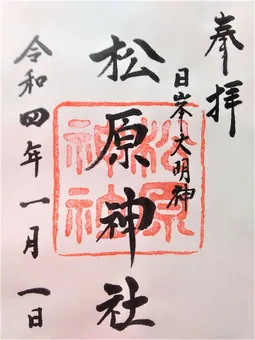 奉拝
日峯大明神
松原神社
松原神社
令和四年一月一日